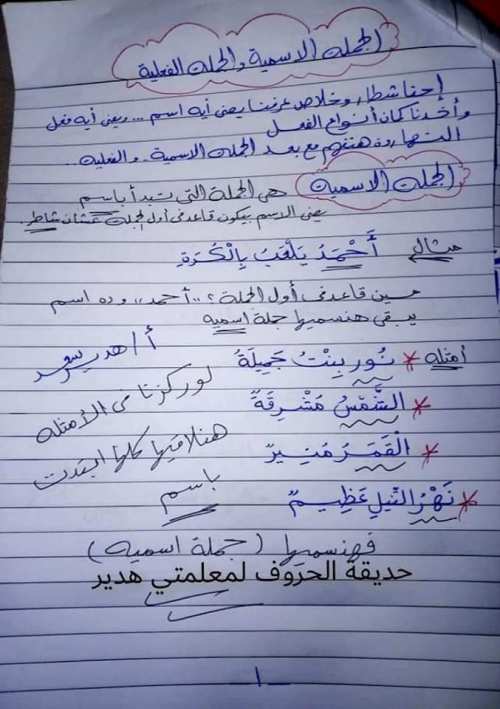 الجملة الاسمية والجملة الفعلية
إحنا شطار وخلاص عرفنا يعني أيه اسم ... ويعني أيه فعل
وأخدنا كمان أنواع الفعل
النهاردة هنفهم مع بعض الجملة الاسمية .. والفعلية ..
الجملة الاسمية هي الجملة التي تبدأ باسم
يعني الاسم بيكون قاعد في أول الجملة عشان شاطر
مثال أَحْمَدُ يَلْعَبُ بِالْكُرَةِ
مين قاعد في أول الجملة؟ ،، أحمد ،، وده اسم
يبقى هنسميها جملة اسمية
أ/ هدير سعد
أمثلة * نُور بِنْتُ جَمِيلَةُ
* الشَّمْسُ مَشْرِقَةً
* الْقَمَرُ مُنِيرٌ
* نَهْرُ النِّيلِ عَظِيمٌ
لو ركزنا في الأمثلة
هنلاقيها كلها ابتدت
باسم
فهنسميها (جملة اسمية)
حديقة الحروف لمعلمتي هدير
١